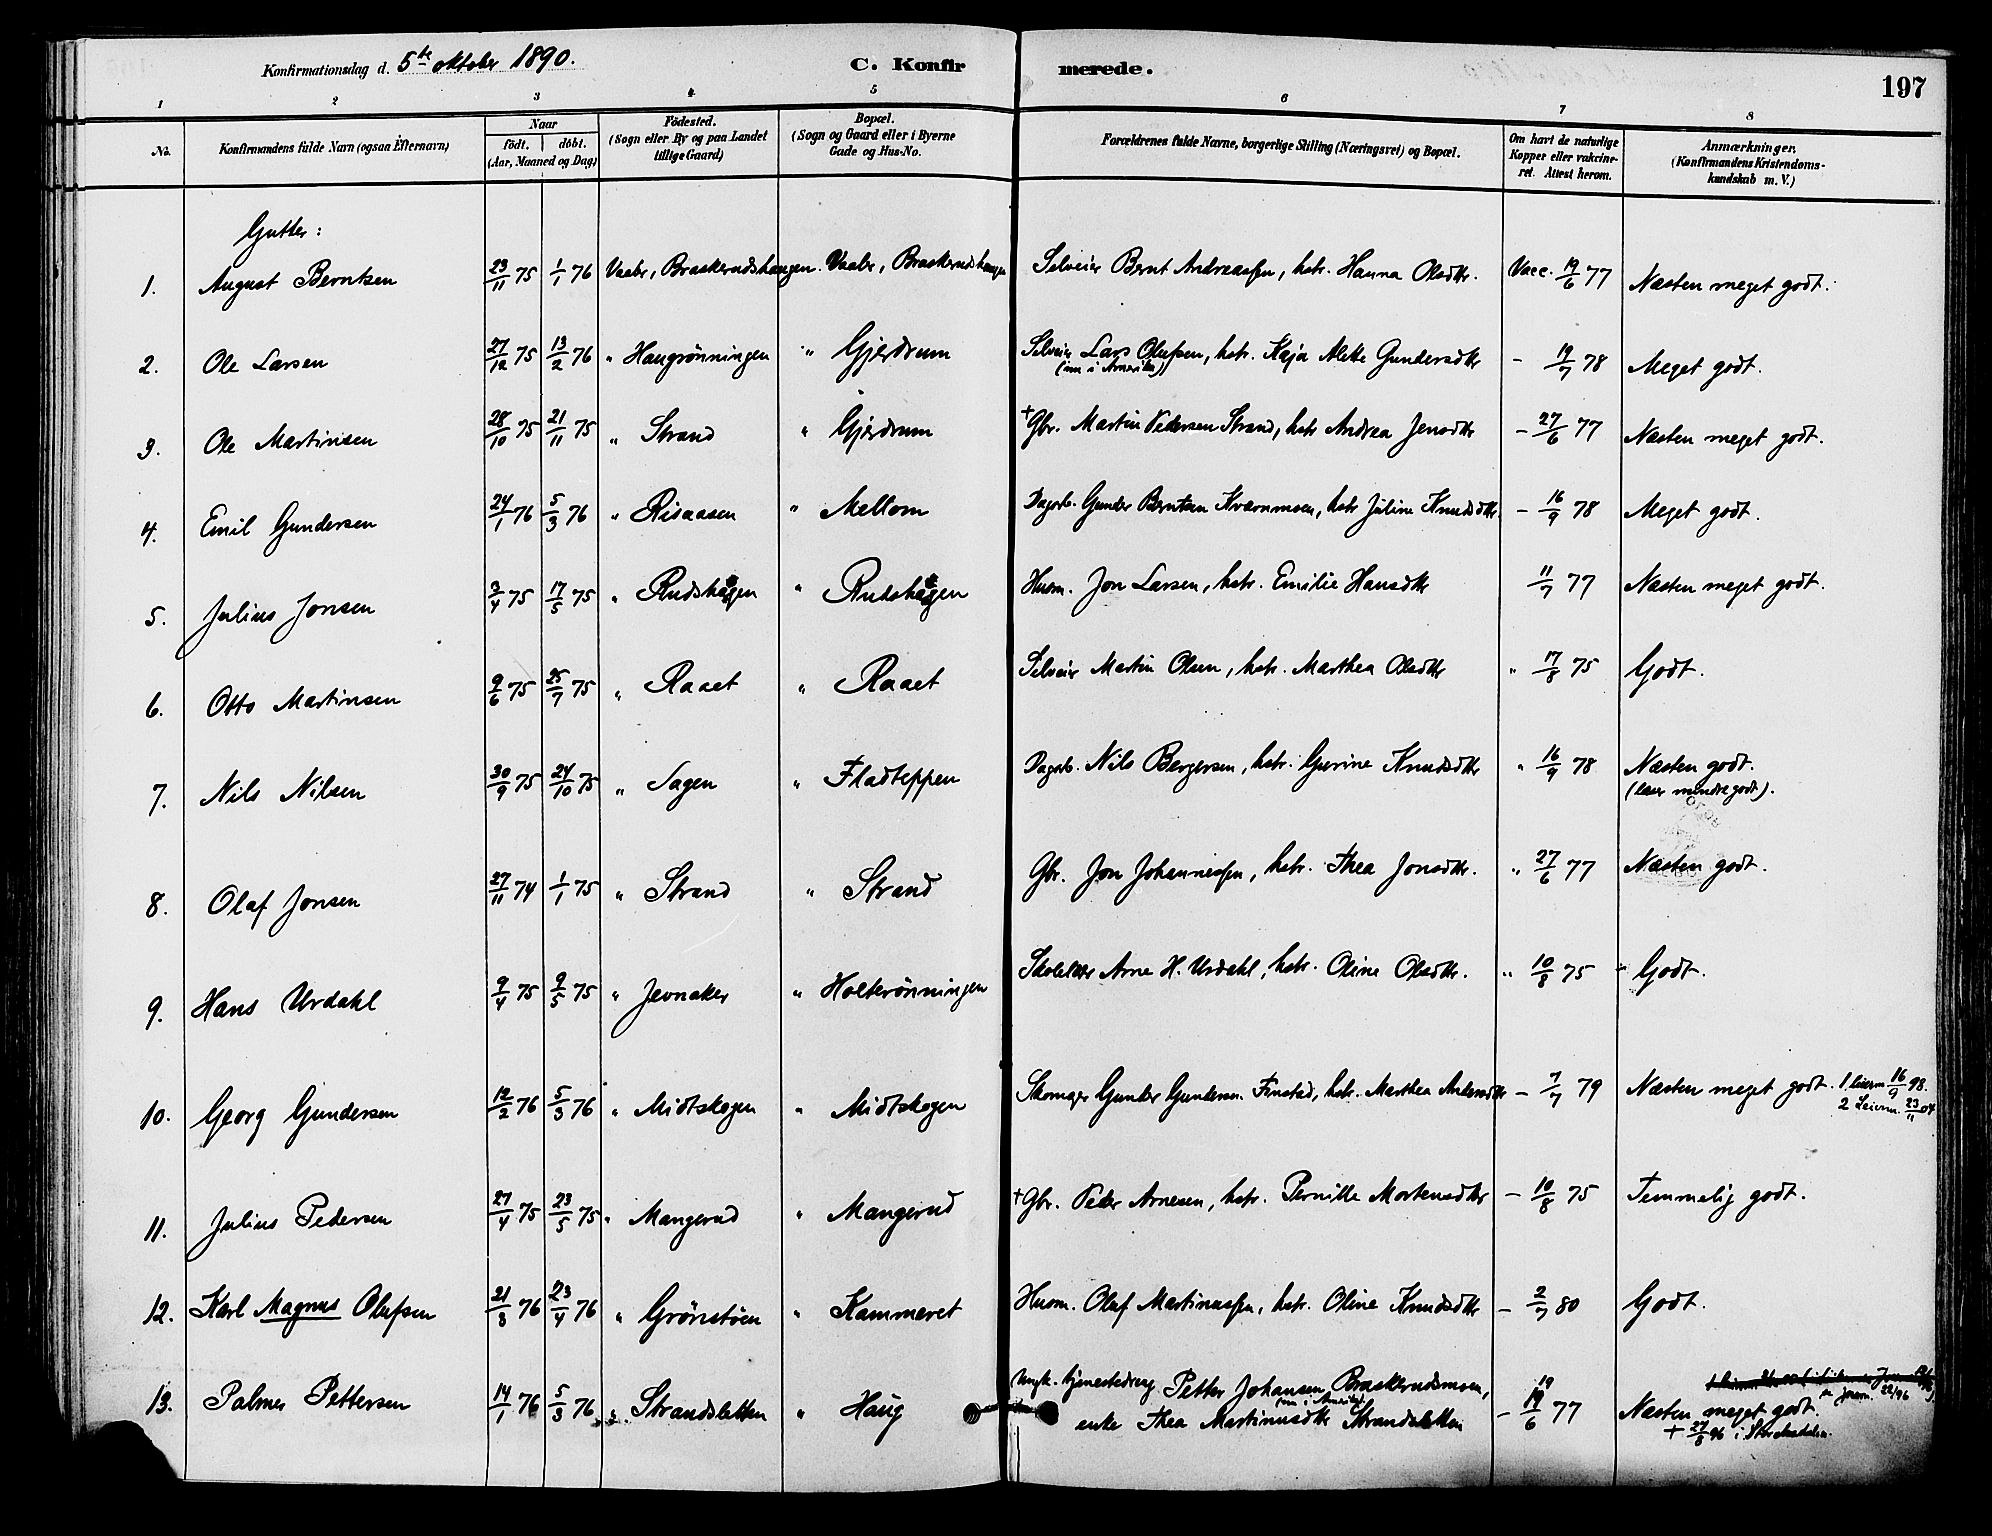 Konfirmationsdag d. 5te oktober 1890.
C. Konfir
merede.
197
1 2 3 4 5 6 7 8
No.
Konfirmandens fulde Navn (ogsaa Efternavn)
Naar
födt. döbt.
(Aar, Maaned og Dag)
Födested.
(Sogn eller By og paa Landet
tillige Gaard)
Bopæl.
(Sogn og Gaard eller i Byerne
Gade og Hus-No.
Forældrenes fulde Navne, borgerlige Stilling (Næringsvei) og Bopæl.
Om havt de naturlige
Kopper eller vakcine-
ret. Attest herom.
Anmærkninger.
(Konfirmandens Kristendoms-
kundskab m. V.)
Gutter:
1. August Berntsen 23/11 75 1/1 76 Vaaler, Braskerudshaugen. Vaaler, Braskerudshaugen Selveier Bernt Andreassen, hstr. Hanna Olsdtr. Vacc. 19/6 77 Næsten meget godt.
2. Ole Larsen 27/12 75 13/2 76 " Haugrønningen " Gjerdrum Selveier Lars Olufsen, hstr. Kaja Alette Gundersdtr - 19/7 78 Meget godt.
(nu i Amerika)
3. Ole Martinsen 28/10 75 21/11 75 " Strand " Gjerdrum + Gbr. Martin Pedersen Strand, hstr Andrea Jensdtr - 27/6 77 Næsten meget godt.
4. Emil Gundersen 24/1 76 5/3 76 " Risaasen " Mellom Dagarb. Gunder Berntsen Kværnmoen, hstr Juline Knudsdtr. - 16/9 78 Meget godt.
5. Julius Jonsen 3/4 75 17/5 75 " Rudshagen " Rudshagen Husm. Jon Larsen, hstr. Emilie Hansdtr 11/7 77 Næsten meget godt.
6. Otto Martinsen 9/6 75 25/7 75 " Raaet " Raaet Selveier Martin Olsen, hstr. Marthea Olsdtr " 17/8 75 Godt.
7. Nils Nilsen 30/9 75 24/10 75 " Sagen " Fladteppen Dagarb. Nils Bergersen, hstr. Gurine Knudsdtr " 16/9 78 Næsten godt.
(læser mindre godt).
8. Olaf Jonsen 27/11 74 1/1 75 " Strand " Strand Gbr. Jon Johannessen, hstr. Thea Jonsdtr. " 27/6 77 Næsten godt.
9. Hans Urdahl 9/4 75 9/5 75 " Jevnaker " Holterønningen Skolelær Arne H. Urdahl, hstr. Oline Olsdtr. " 10/8 75 - Godt.
10. Georg Gundersen 12/2 76 5/3 76 " Midtskogen " Midtskogen Skomager Gunder Gundersen Finstad, hstr. Marthea Andersdtr - 7/7 79 Næsten meget godt. 1 leierm 16/9 98.
2 Leierm. 23/11 04
11. Julius Pedersen 27/4 75 23/5 75 " Mangerud " Mangerud + Gbr. Peder Arnesen, hstr. Pernille Mortensdtr - 10/8 75 Temmelig godt.
12. Karl Magnus Olufsen 21/3 76 23/4 76 " Grønstøen " Kammeret Husm. Oluf Martinussen, hstr. Oline Knudsdtr - 2/7 80 Godt.
13. Palmer Pettersen 14/1 76 5/3 76 " Strandsletten " Haug Ungk. tjenestedreng Petter Johansen Braskerudsmoen,
(nu i Amerika)
enke Thea Martinusdtr Strandsletten - 19/6 77 Næsten meget godt.
19
+ 27/8 96 i